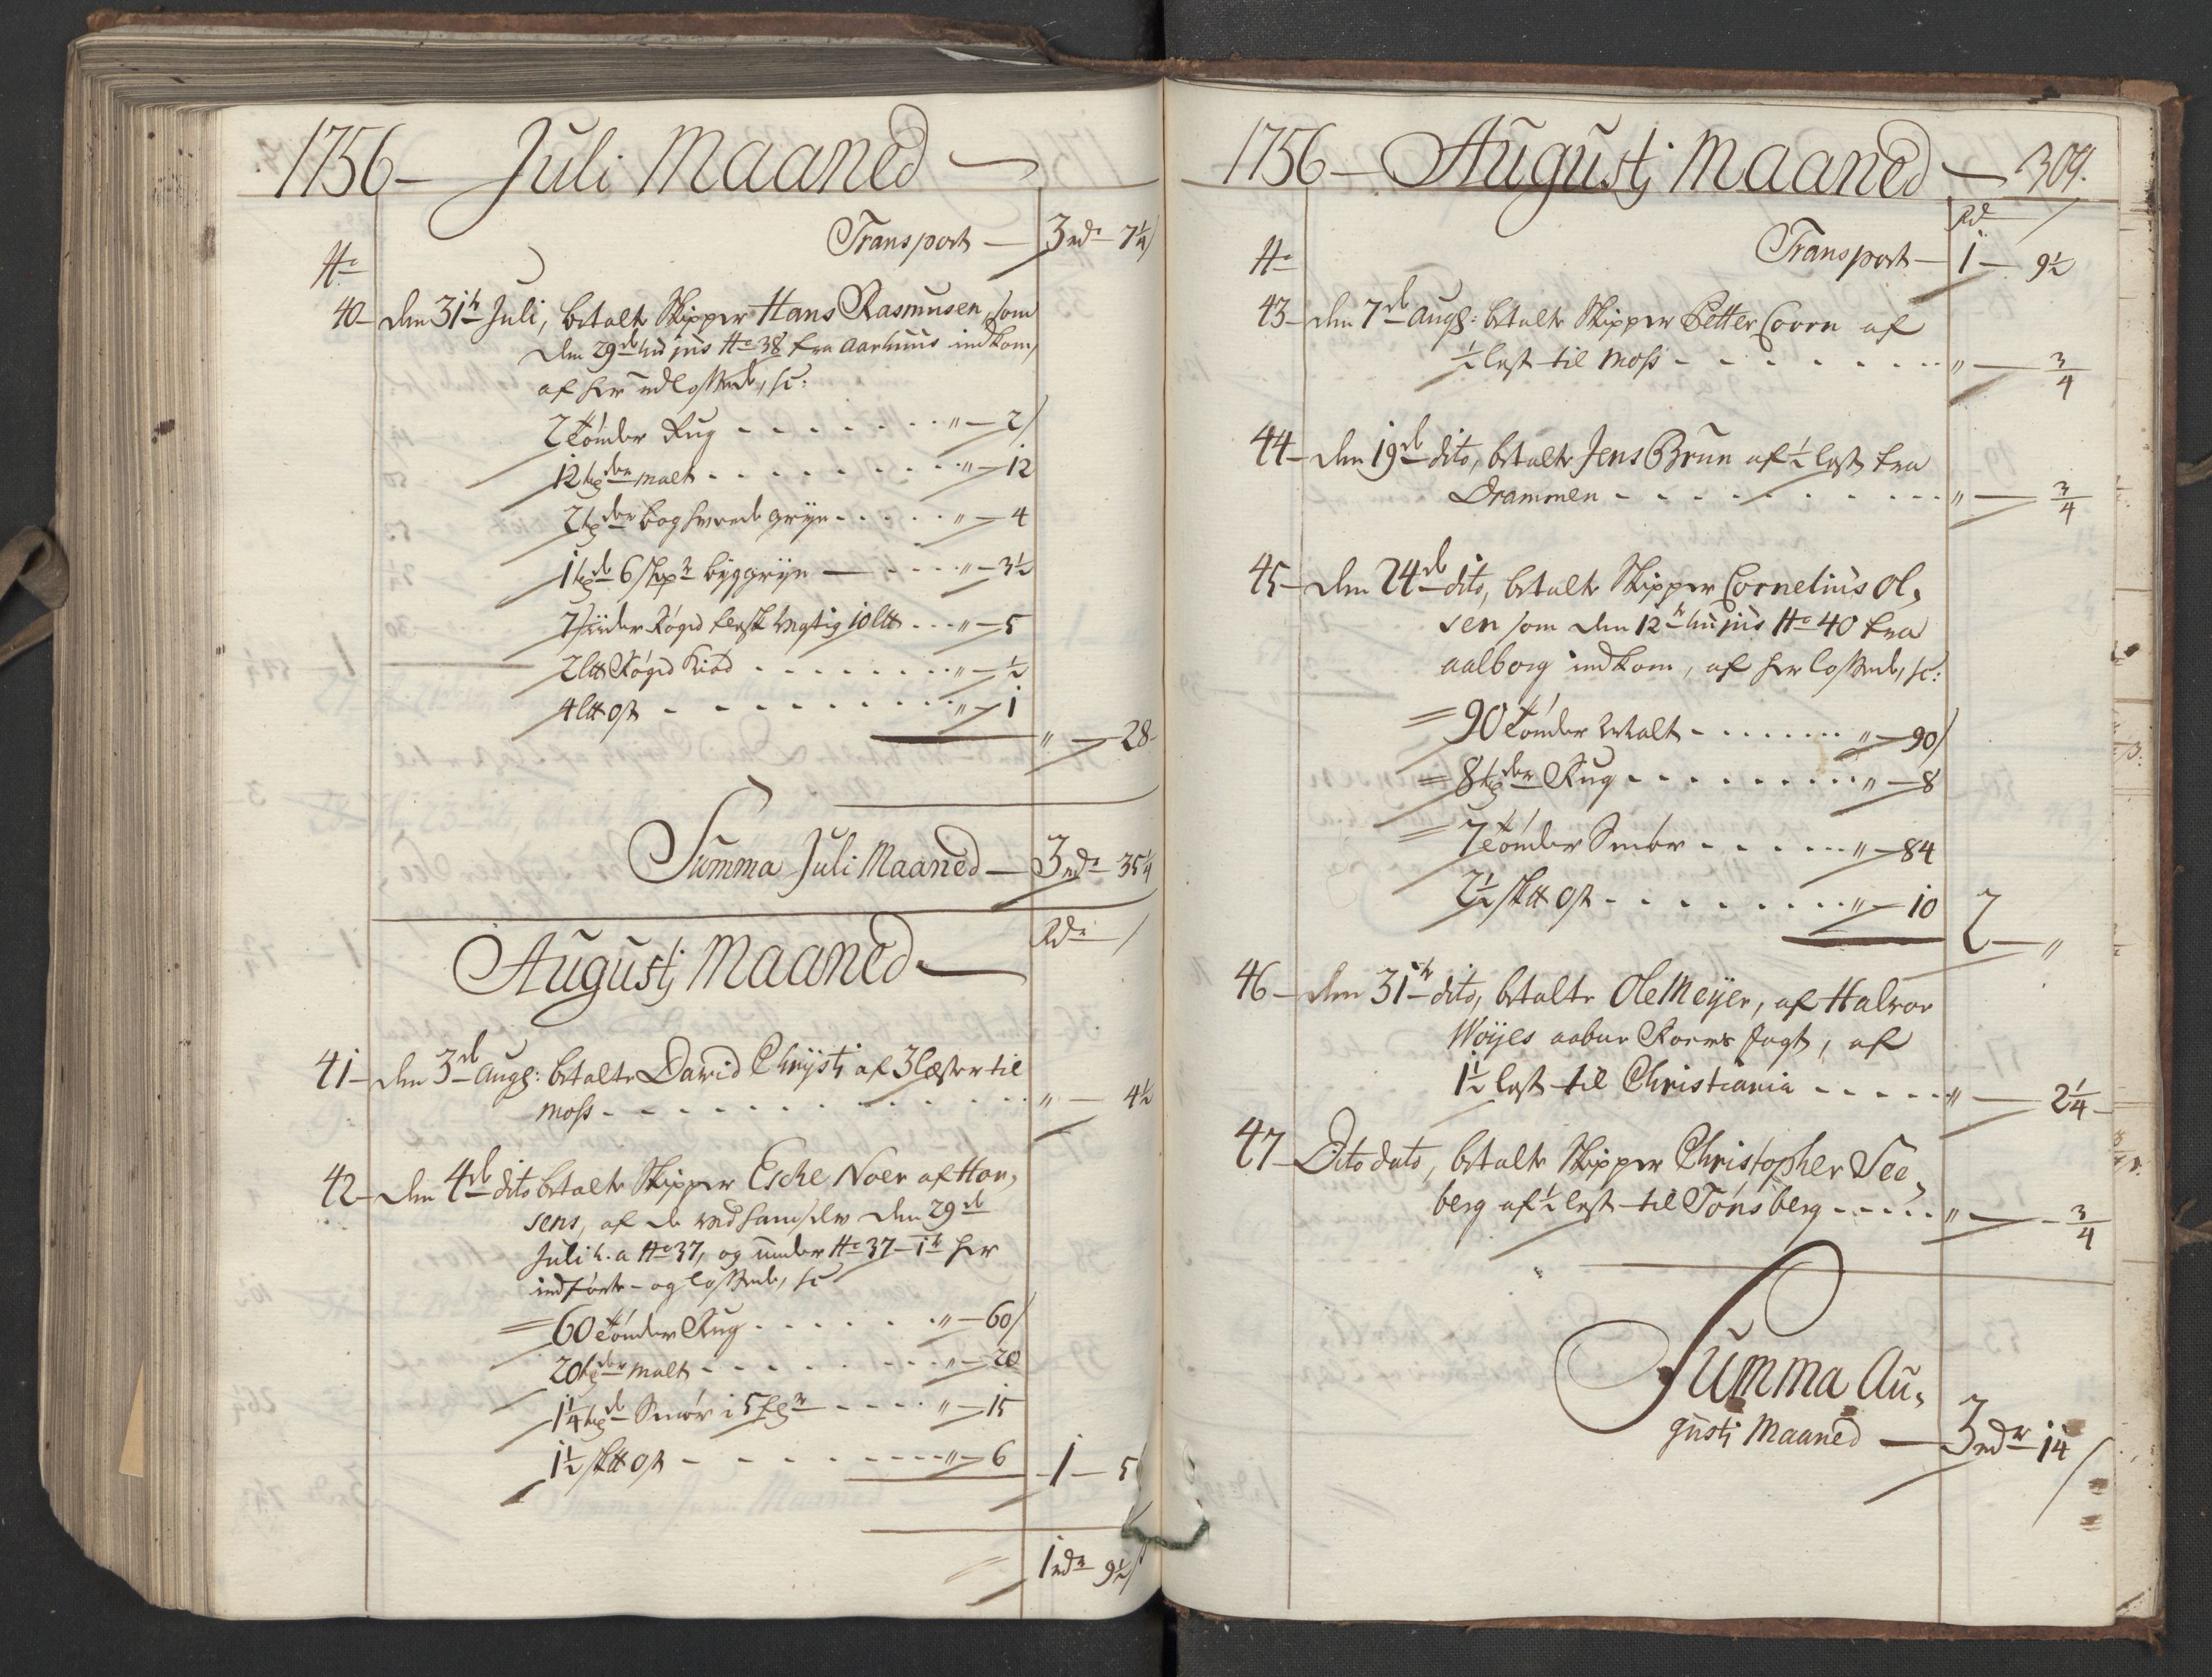 1756 – Juli Maaned –
Transport – 3 rdr 7 1/4
No
40 – den 31te Juli, betalte Skipper Hans Rasmusen, som
den 29de huius No 38 fra Aarhuus indkom,
af her udlossede, sc:
2 Tønder Rug - - - - " – 2
12 tøder malt - - - - " – 12
2 tøder boghvede gryn - - - - " – 4
1 tøde 6 skpr byggryn – - - - " – 3 1/2
7 siider Røged flesk vegtig 10 l℔ - - - " – 5
2 l℔ Røged Kiød - - - - " – 1/2
4 l℔ ost - - - - " – 1
" – 28
Summa Juli Maaned – 3 rdr 35 1/4
Augustj Maaned – Rdr
41 – den 3de Aug: betalte David Chrysti af 3 læster til
Moss - - - - " – 4 1/2
42 – den 4de dito betalte Skipper Esche Noer af Hor,
sens, af de ved ham selv den 29de
Juli h. a No 37, og under No 37 – 1te her
indførte – og lossede, sc
60 Tønder Rug - - - - " – 60
20 tøder malt - - - - " – 20
1 1/4 tøde Smør i 5 fgr - - - - " – 15
1 1/2 sk℔ ost - - - - " – 6
1 – 5
1 rdr 9 1/2
1756 – Augustj Maaned – 309.
Rdr
Transport – 1 – 9 1/2
No
43 – den 7de Aug: betalte Skipper Petter Coorn af
1/2 lest til Moss - - - - " – 3/4
44 – den 19de dito, betalte Jens Brun af 1/2 lest fra
Drammen - - - - " – 3/4
45 – den 24de dito, betalte Skipper Cornelius Ol,
sen som den 12te huius No 40 fra
Aalborg indkom, af her lossede, sc:
90 Tønder malt - - - - " – 90
8 tøder Rug - - - - " – 8
7 Tønder Smør - - - - " – 84
2 1/2 sk℔ ost - - - - " – 10
2 – "
46 – den 31te dito, betalte Ole Meyer, af Halvor
Woyes aabne Roers Jagt, af
1 1/2 lest til Christiania - - - - " – 2 1/4
47 – Dito dato, betalte Skipper Christopher See,
berg af 1/2 lest til Tønsberg - - - - " – 3/4
Summa Au,
gusti Maaned – 3 rdr 14